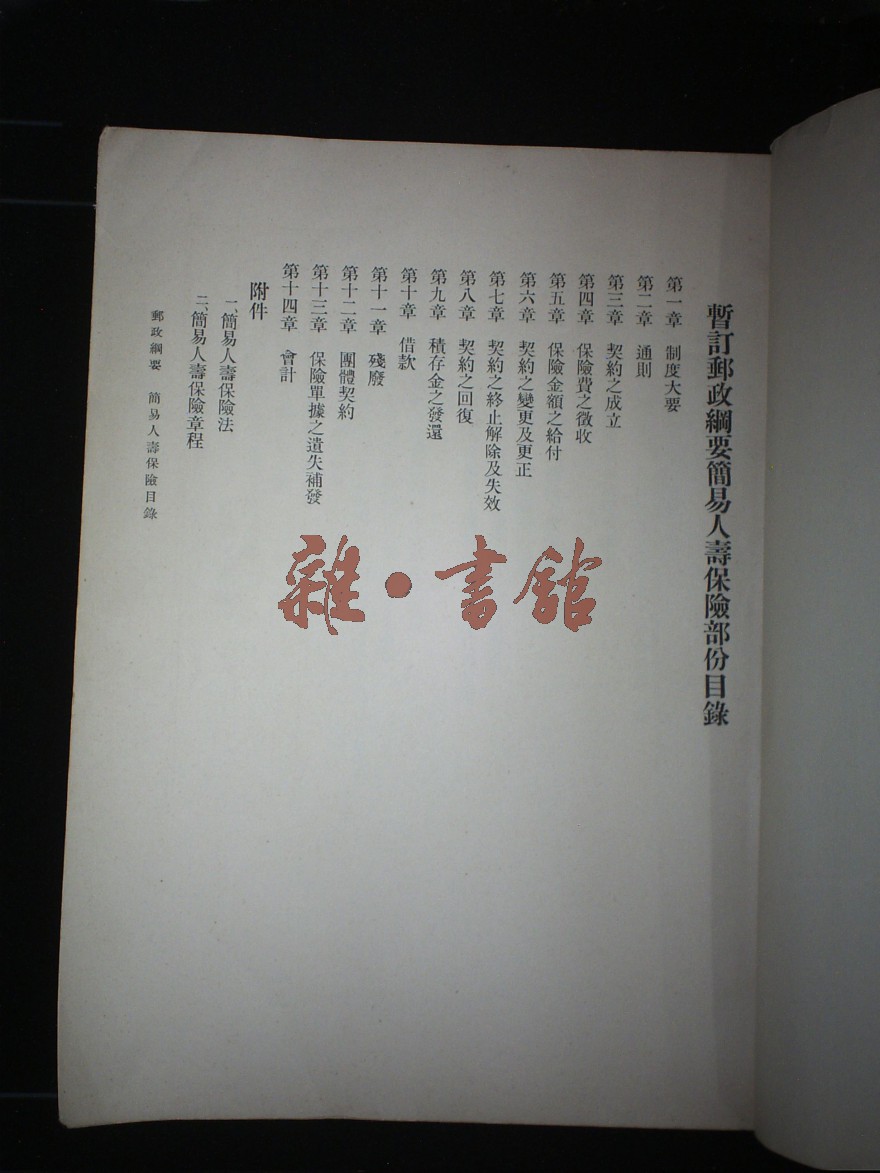 暫訂郵政綱要簡易人壽保險部份目錄
第一章 制度大要
第二章 通則
第三章 契約之成立
第四章 保險費之徵收
第五章 保險金額之給付
第六章 契約之變更及更正
第七章 契約之終止解除及失效
第八章 契約之回復
第九章 積存金之發還
第十章 借款
第十一章 殘廢
第十二章 團體契約
第十三章 保險單據之遺失補發
第十四章 會計
附件
一、簡易人壽保險法
二、簡易人壽保險章程
郵政綱要 簡易人壽保險目錄
雜·書館